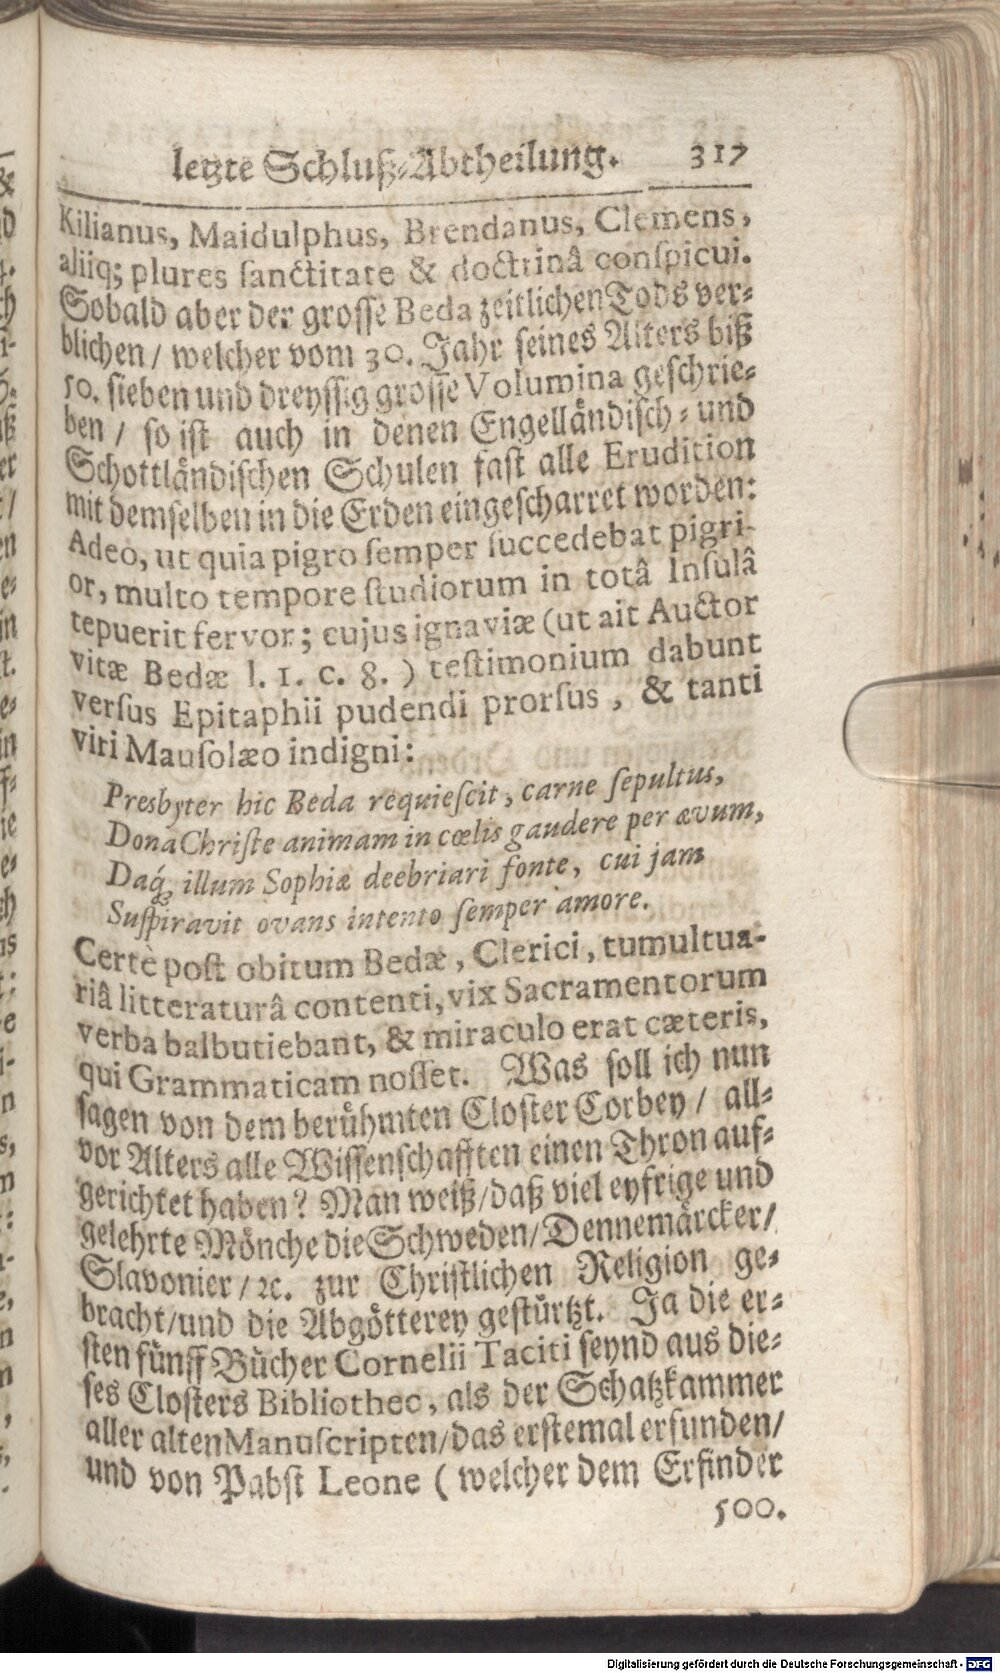 letzte Schluß-Abtheilung. 317
Kilianus, Maidulphus, Brendanus, Clemens,
aliiq; plures ſanctitate & doctrinâ conſpicui.
Sobald aber der groſſe Beda zeitlichen Tods ver-
blichen / welcher vom 30. Jahr ſeines Alters biß
50. ſieben und dreyſſig groſſe Volumina geſchrie-
ben / ſo iſt auch in denen Engelländiſch- und
Schottländiſchen Schulen faſt alle Erudition
mit demſelben in die Erden eingeſcharret worden:
Adeo, ut quia pigro ſemper ſuccedebat pigri-
or, multo tempore ſtudiorum in totâ Inſulâ
tepuerit fervor; cujus ignaviæ (ut ait Auctor
vitæ Bedæ l. 1. c. 8. ) teſtimonium dabunt
verſus Epitaphii pudendi prorſus, & tanti
viri Mauſolæo indigni:
Presbyter hic Beda requieſcit, carne ſepultus,
Dona Chriſte animam in cœlis gaudere per ævum,
Daq́; illum Sophiæ deebriari fonte, cui jam
Suſpiravit ovans intento ſemper amore.
Certè poſt obitum Bedæ, Clerici, tumultua-
riâ litteraturâ contenti, vix Sacramentorum
verba balbutiebant, & miraculo erat cæteris,
qui Grammaticam noſſet. Was ſoll ich nun
ſagen von dem berühmten Cloſter Corbey / all-
vor Alters alle Wiſſenſchafften einen Thron auf-
gerichtet haben? Man weiß/daß viel eyfrige und
gelehrte Mönche die Schweden/Dennemärcker/
Slavonier / ꝛc. zur Chriſtlichen Religion ge-
bracht/und die Abgötterey geſtürtzt. Ja die er-
ſten fünff Bücher Cornelii Taciti ſeynd aus die-
ſes Cloſters Bibliothec, als der Schatzkammer
aller alten Manuſcripten/das erſtemal erfunden/
und von Pabſt Leone ( welcher dem Erfinder
500.
Digitalisierung gefördert durch die Deutsche Forschungsgemeinschaft - DFG